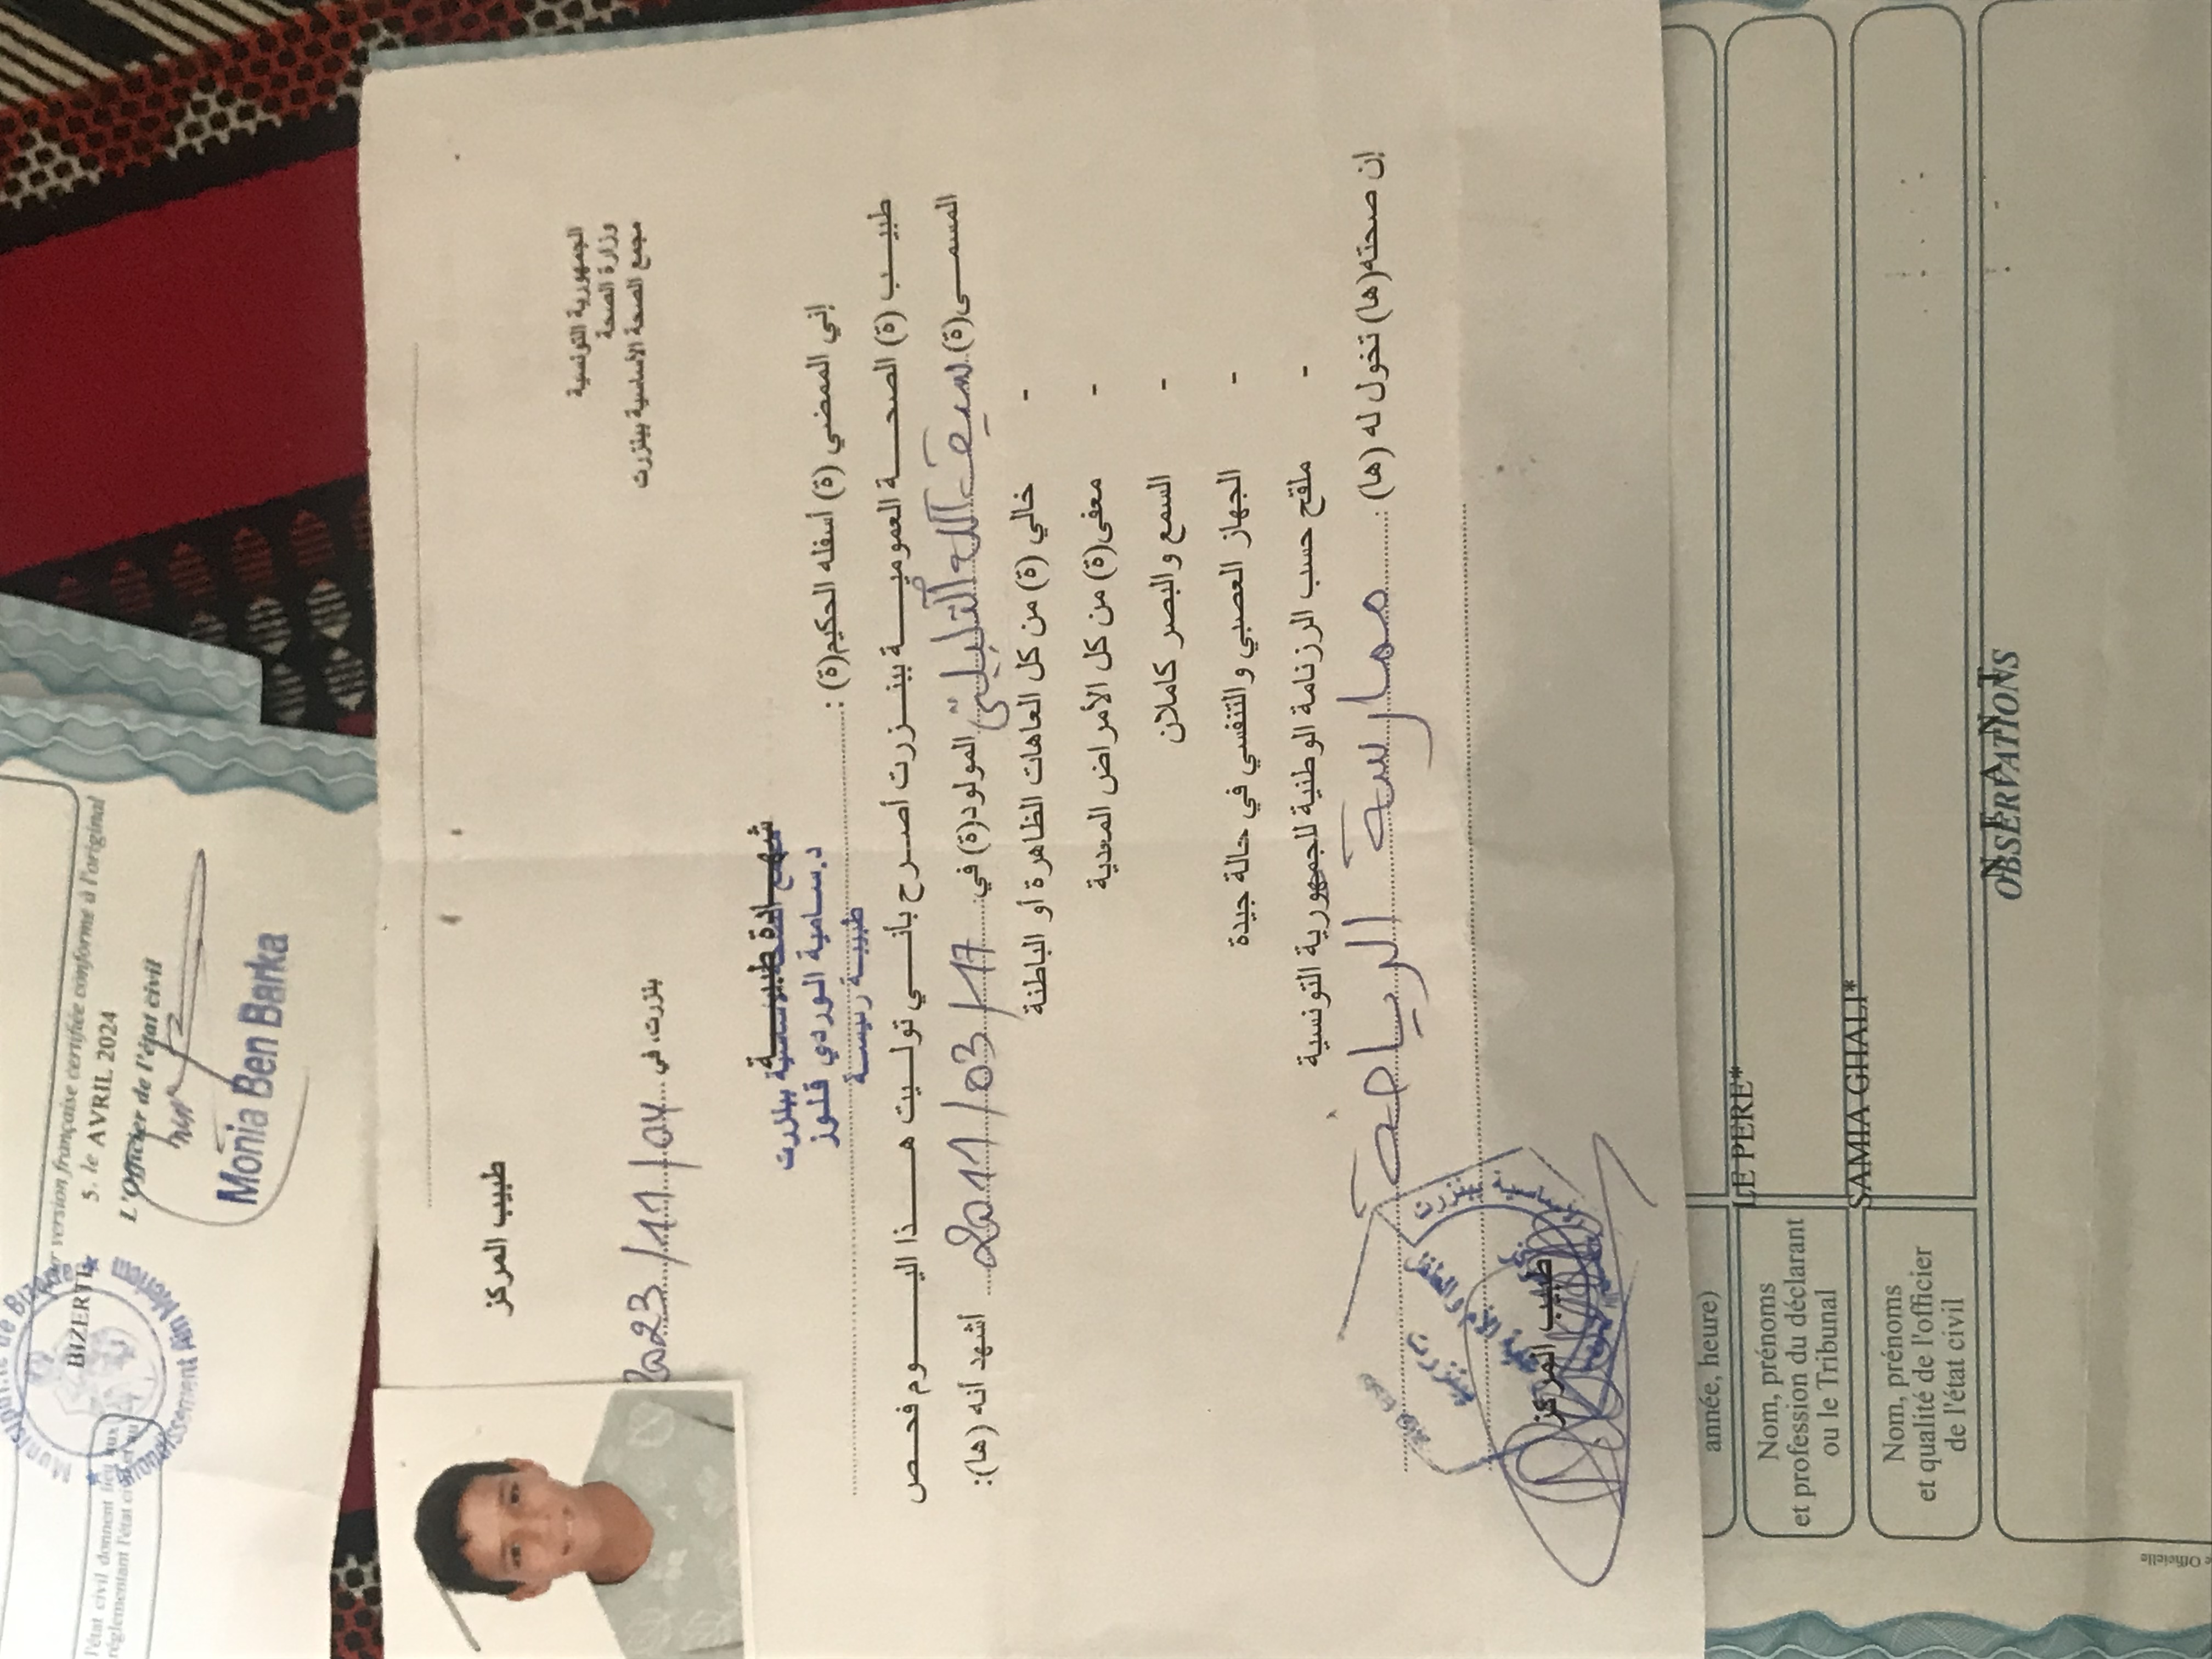 الجمهورية التونسية
وزارة الصحة
مجمع الصحة الأساسية ببنزرت
طبيب المركز
بنزرت، في 2023/11/04
شهادة طبية
د.سامية الوردي قلوز
طبيبة رئيسة
إني الممضي (ة) أسفله الحكيم(ة) :
طبيب (ة) الصحة العمومية ببنزرت أصرح بأني توليت هذا اليوم فحص
المسمى(ة) سيف الله التليلي المولود(ة) في 2011/03/17 أشهد أنه (ها):
- خالي (ة) من كل العاهات الظاهرة أو الباطنة
- معفى(ة) من كل الأمراض المعدية
- السمع والبصر كاملان
- الجهاز العصبي والتنفسي في حالة جيدة
- ملقح حسب الرزنامة الوطنية للجمهورية التونسية
إن صحته(ها) تخول له (ها) : ممارسة الرياضة
طبيب المركز
الأم والطفل
بنزرت
pour version française certifiée conforme à l'original
BIZERTE 5. le AVRIL 2024
L'Officier de l'état civil
Monia Ben Barka
Municipalité de Bizerte
Arrondissement Ain Meriem
l'état civil donnent lieu aux
réglementant l'état civil
année, heure)
Nom, prénoms
et profession du déclarant
ou le Tribunal
LE PERE*
Nom, prénoms
et qualité de l'officier
de l'état civil
SAMIA GHALI*
OBSERVATIONS
NEANT
Officielle